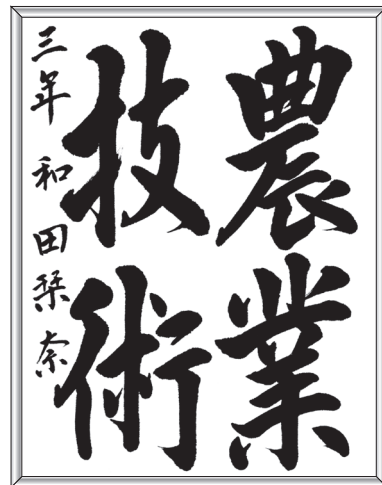 農業
技術
三年 和田栞奈